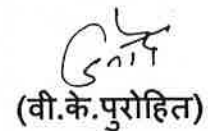 (वी.के.पुरोहित)